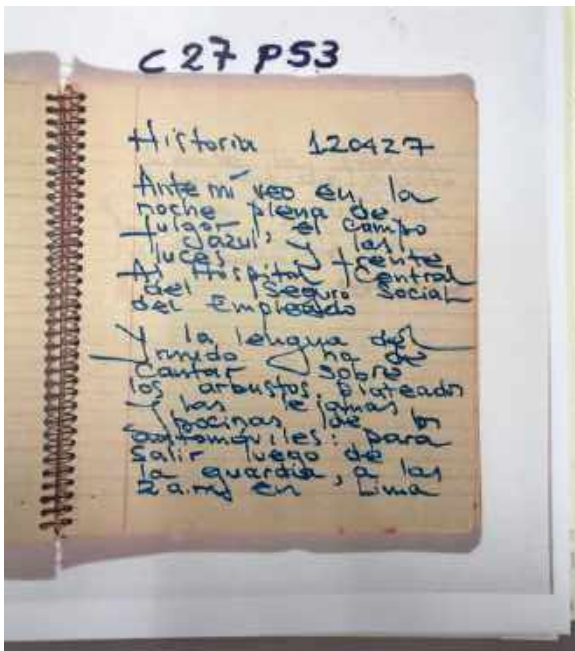 C 27 P53
Historia 120427
Ante mí veo en la
noche plena de
fulgor, el campo
azul, y las
luces frente
Al Hospital Central
del Seguro Social
del Empleado
Y la lengua del
mudo ha de
cantar sobre
los arbustos plateados
y las lejanas
bocinas de los
automóviles: para
salir luego de
la guardia, a las
2 a.m. en Lima